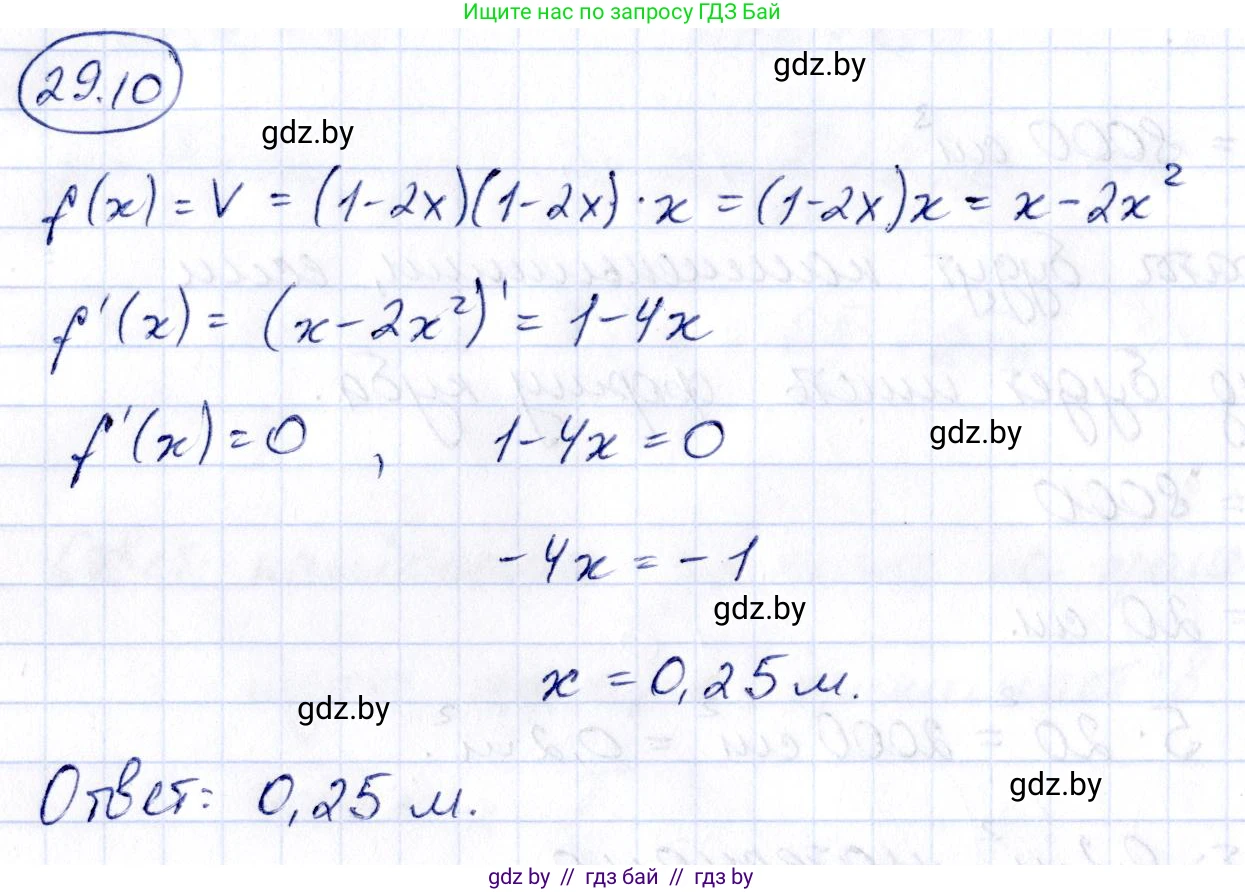 Ищите нас по запросу ГДЗ Бай
29.10
gdz.by
gdz.by
f(x) = V = (1-2x)(1-2x)·x = (1-2x)x = x-2x²
f'(x) = (x-2x²)' = 1-4x
f'(x)=0 , 1-4x=0
gdz.by
-4x = -1
gdz.by
x = 0,25 м.
gdz.by
Ответ: 0,25 м.
gdz.by
gdz by // гдз бай // gdz by